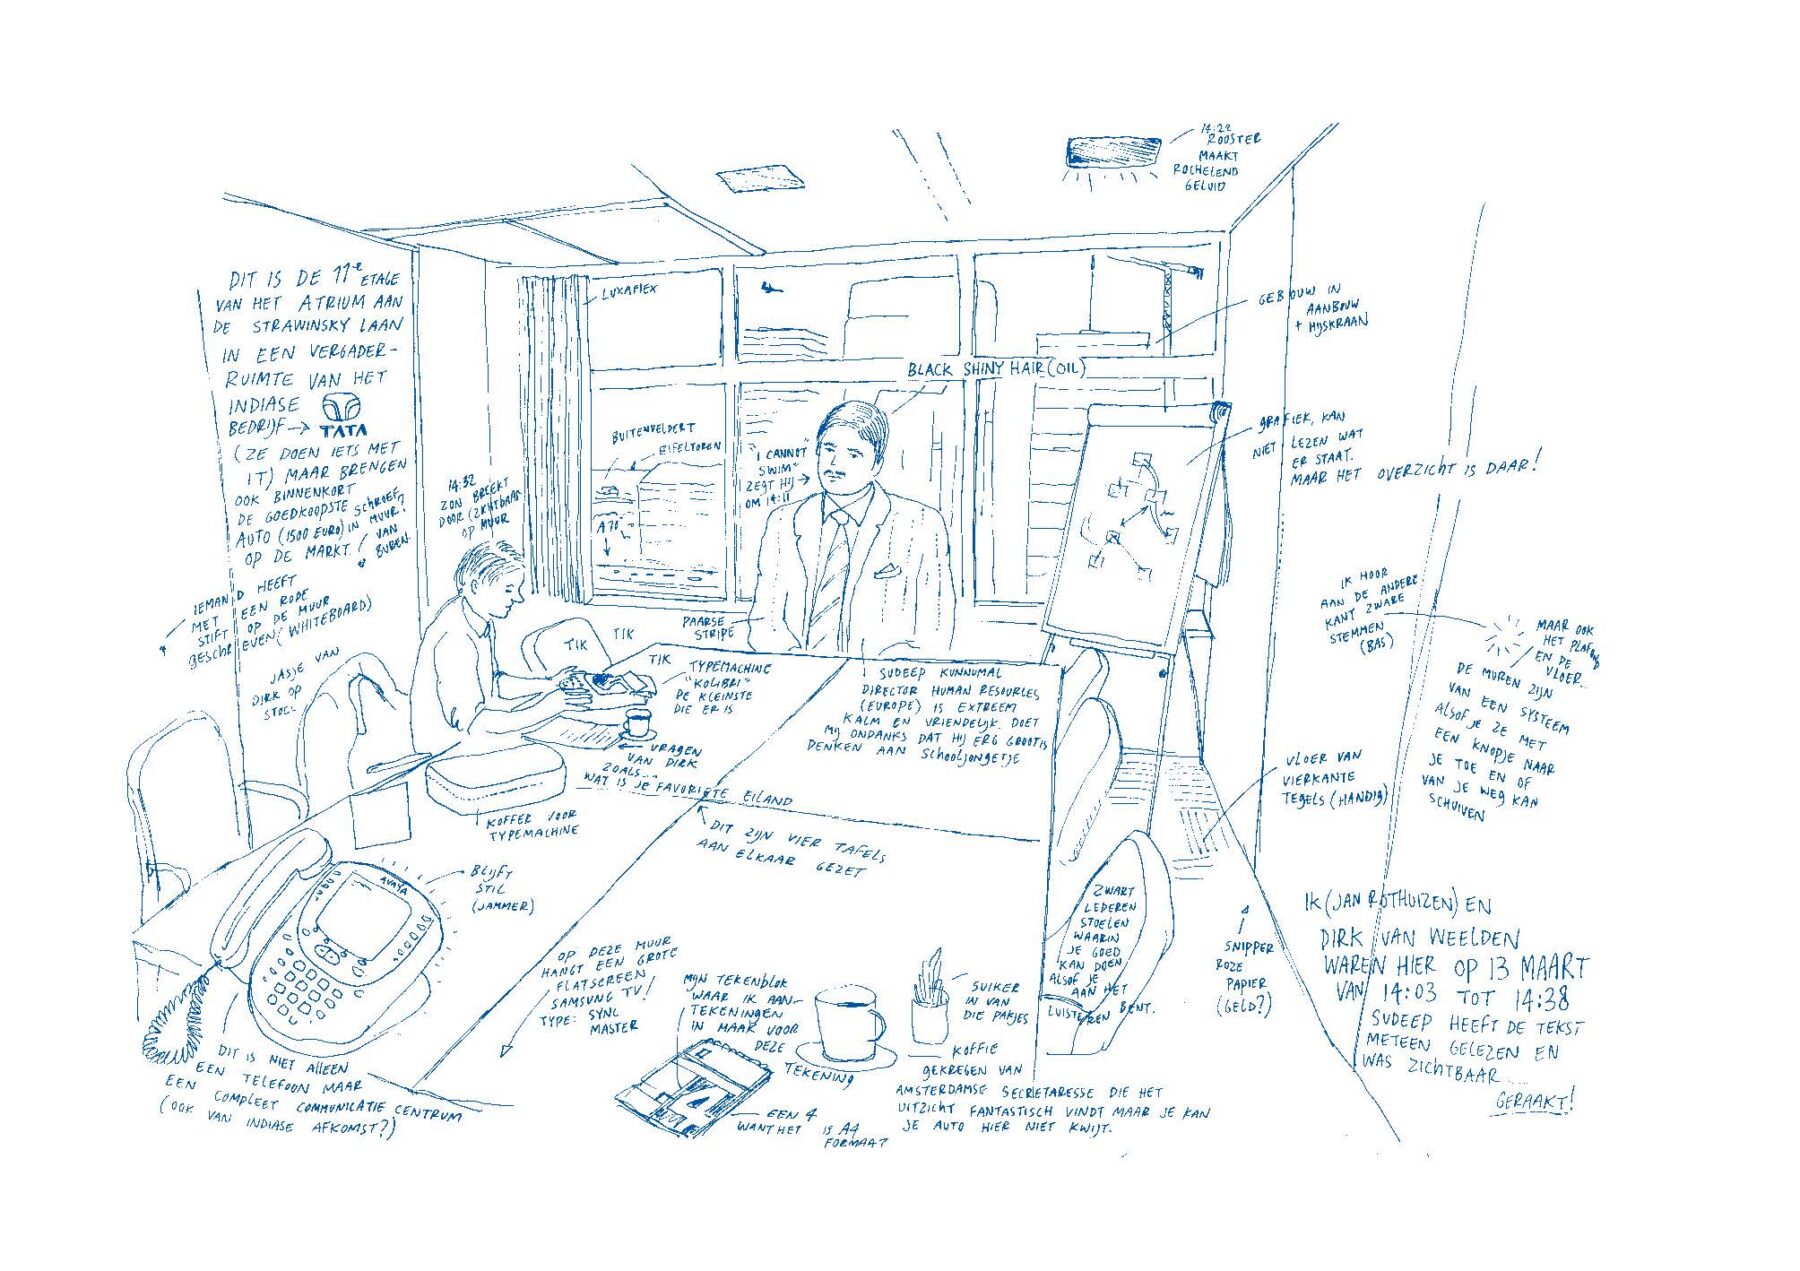 DIT IS DE 11e ETAGE
VAN HET ATRIUM AAN
DE STRAWINSKY LAAN
IN EEN VERGADER-
RUIMTE VAN HET
INDIASE
BEDRIJF → TATA
(ZE DOEN IETS MET
IT) MAAR BRENGEN
OOK BINNENKORT
DE GOEDKOOPSTE
AUTO (1500 EURO)
OP DE MARKT.
SCHROEF?
IN MUUR!
VAN
BUREN.
IEMAND HEEFT
MET EEN RODE
STIFT OP DE MUUR
GESCHREVEN (WHITEBOARD)
JASJE VAN
DIRK OP
STOEL
14:32
ZON BREEKT
DOOR (ZICHTBAAR
OP MUUR
LUXAFLEX
BUITENVELDERT
EIFELTOREN
A10
"I CANNOT
SWIM"
ZEGT HIJ
OM 14:11
BLACK SHINY HAIR (OIL)
14:22
ROOSTER
MAAKT
ROCHELEND
GELUID
GEBOUW IN
AANBOUW
+ HIJSKRAAN
GRAFIEK, KAN
NIET LEZEN WAT
ER STAAT.
MAAR HET OVERZICHT IS DAAR!
IK HOOR
AAN DE ANDERE
KANT ZWARE
STEMMEN
(BAS)
MAAR OOK
HET PLAFOND
EN DE
VLOER...
DE MUREN ZIJN
VAN EEN SYSTEEM
ALSOF JE ZE MET
EEN KNOPJE NAAR
JE TOE EN OF
VAN JE WEG KAN
SCHUIVEN
PAARSE
STRIPE
TIK
TIK
TIK
TYPEMACHINE
"KOLIBRI"
DE KLEINSTE
DIE ER IS
SUDEEP KUNNUMAL
DIRECTOR HUMAN RESOURCES
(EUROPE) IS EXTREEM
KALM EN VRIENDELIJK. DOET
MIJ ONDANKS DAT HIJ ERG GROOT IS
DENKEN AAN SCHOOLJONGETJE
VRAGEN
VAN DIRK
ZOALS...
WAT IS JE FAVORIETE EILAND
KOFFER VOOR
TYPEMACHINE
DIT ZIJN VIER TAFELS
AAN ELKAAR GEZET
VLOER VAN
VIERKANTE
TEGELS (HANDIG)
AVAYA
BLIJFT
STIL
(JAMMER)
DIT IS NIET ALLEEN
EEN TELEFOON MAAR
EEN COMPLEET COMMUNICATIE CENTRUM
(OOK VAN INDIASE AFKOMST?)
OP DEZE MUUR
HANGT EEN GROTE
FLATSCREEN
SAMSUNG TV!
TYPE: SYNC
MASTER
MIJN TEKENBLOK
WAAR IK AAN-
TEKENINGEN
IN MAAK VOOR
DEZE
TEKENING
EEN 4
WANT HET IS A4
FORMAAT
SUIKER
IN VAN
DIE PAKJES
KOFFIE
GEKREGEN VAN
AMSTERDAMSE SECRETARESSE DIE HET
UITZICHT FANTASTISCH VINDT MAAR JE KAN
JE AUTO HIER NIET KWIJT.
ZWART
LEDEREN
STOELEN
WAARIN
JE GOED
KAN DOEN
ALSOF JE
AAN HET
LUISTEREN BENT.
SNIPPER
ROZE
PAPIER
(GELD?)
IK (JAN ROTHUIZEN) EN
DIRK VAN WEELDEN
WAREN HIER OP 13 MAART
VAN 14:03 TOT 14:38
SUDEEP HEEFT DE TEKST
METEEN GELEZEN EN
WAS ZICHTBAAR ...
GERAAKT!